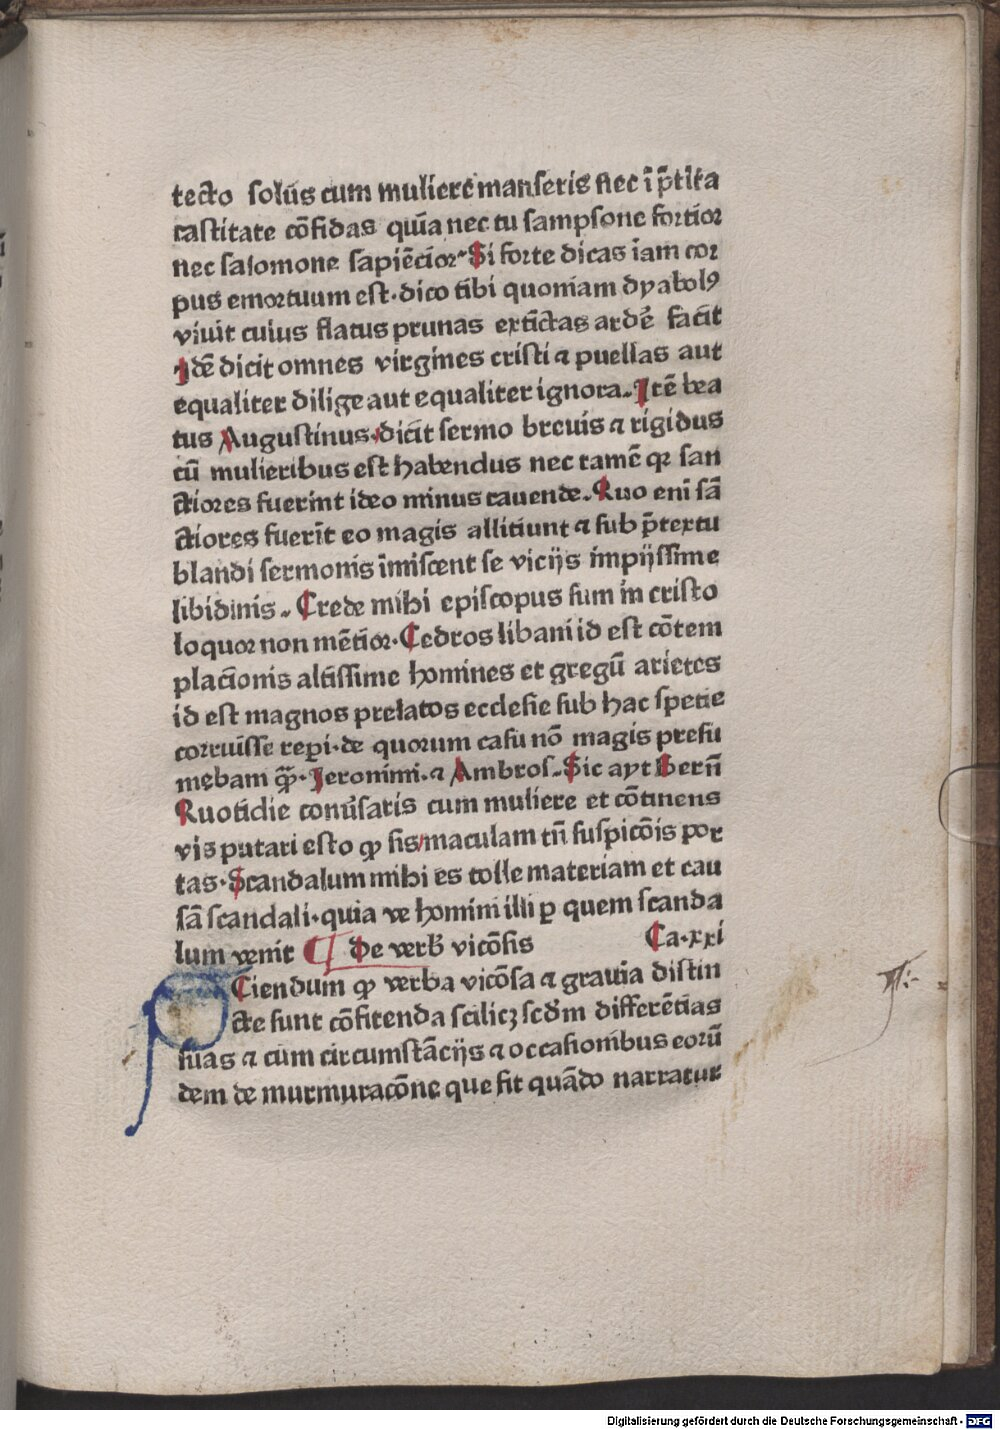 tecto solus cum muliere manseris nec ī p̄tita
castitate cōfidas quīa nec tu sampsone fortior
nec salomone sapiēcior Si forte dicas iam cor
pus emortuum est·dico tibi quoniam dyabolꝰ
viuit cuius flatus prunas extīctas ardē facit
Idē dicit omnes virgines cristi ⁊ puellas aut
equaliter dilige aut equaliter ignora. Itē bea
tus Augustinus·dicit sermo breuis ⁊ rigidus
cū mulieribus est habendus nec tamē qꝛ san
ctiores fuerint ideo minus cauende. Quo enī sā
ctiores fuerīt eo magis allitiunt ⁊ sub p̄textu
blandi sermonis īmiscent se vicijs impijssime
libidinis. Crede mihi episcopus sum in cristo
loquor non mētior·Cedros libani id est cōtem
placionis altissime homines et gregū arietes
id est magnos prelatos ecclesie sub hac specie
corruisse reperi·de quorum casu nō magis presu
mebam qͣ̄·Jeronimi·⁊ Ambros. Sic ayt Bern̄
Quotidie conūsaris cum muliere et cōtinens
vis putari esto ꝙ sis/maculam tn̄ suspicōis por
tas·Scandalum mihi es tolle materiam et cau
sā scandali·quia ve homini illi ꝑ quem scanda
lum venit ¶ De verb̄ vicōsis Ca·xxi
Sciendum ꝙ verba vicōsa ⁊ grauia distin
cte sunt cōfitenda scilicꝫ scd̄m differētias
suas ⁊ cum circumstācijs ⁊ occasionibus eorū
dem de murmuracōne que fit quādo narratur
Digitalisierung gefördert durch die Deutsche Forschungsgemeinschaft - DFG